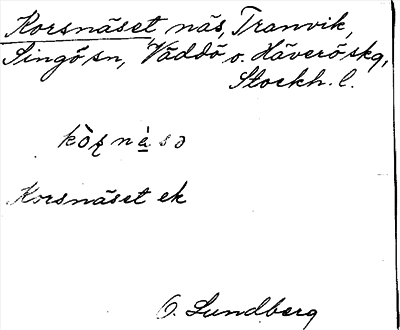 Korsnäset näs, Tranvik,
Singö sn, Väddö o. Häverö skg,
Stockh. l.
Korsnäset ek
O. Lundberg